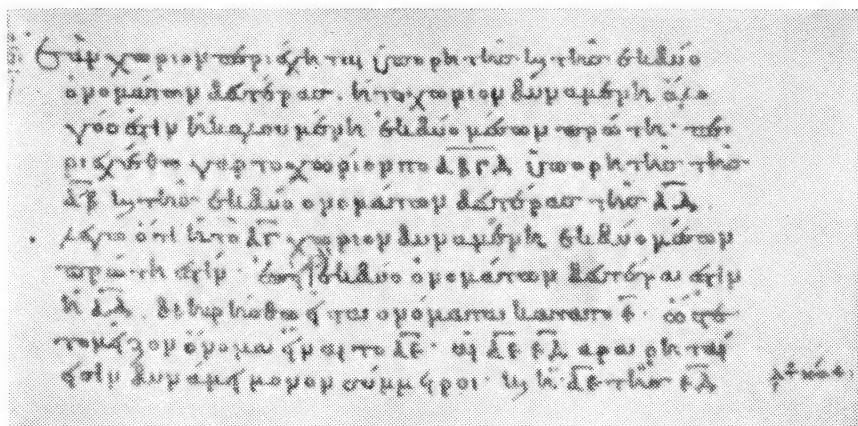 Ἐὰν χωρίον περιέχηται ὑπὸ ῥητῆς καὶ τῆς ἐκ δύο
ὀνομάτων δευτέρας· ἡ τὸ χωρίον δυναμένη ἄλο
γός ἐστιν ἡ καλουμένη ἐκ δύο μέσων πρώτη· πε
ριεχέσθω γὰρ τὸ χωρίον τὸ ΑΒΓΔ ὑπὸ ῥητῆς τῆς
ΑΒ καὶ τῆς ἐκ δύο ὀνομάτων δευτέρας τῆς ΑΔ
λέγω ὅτι ἡ τὸ ΑΓ χωρίον δυναμένη ἐκ δύο μέσων
πρώτη ἐστίν· ἐπεὶ ἐκ δύο ὀνομάτων δευτέρα ἐστιν
ἡ ΑΔ. διῃρήσθω εἰς τὰ ὀνόματα κατὰ τὸ Ε· ὥστε
τὸ μεῖζον ὄνομα εἶναι τὸ ΑΕ· αἱ ΑΕ ΕΔ ἄρα ῥηταί
εἰσιν δυνάμει μόνον σύμμετροι· καὶ ἡ ΑΕ τῆς ΕΔ